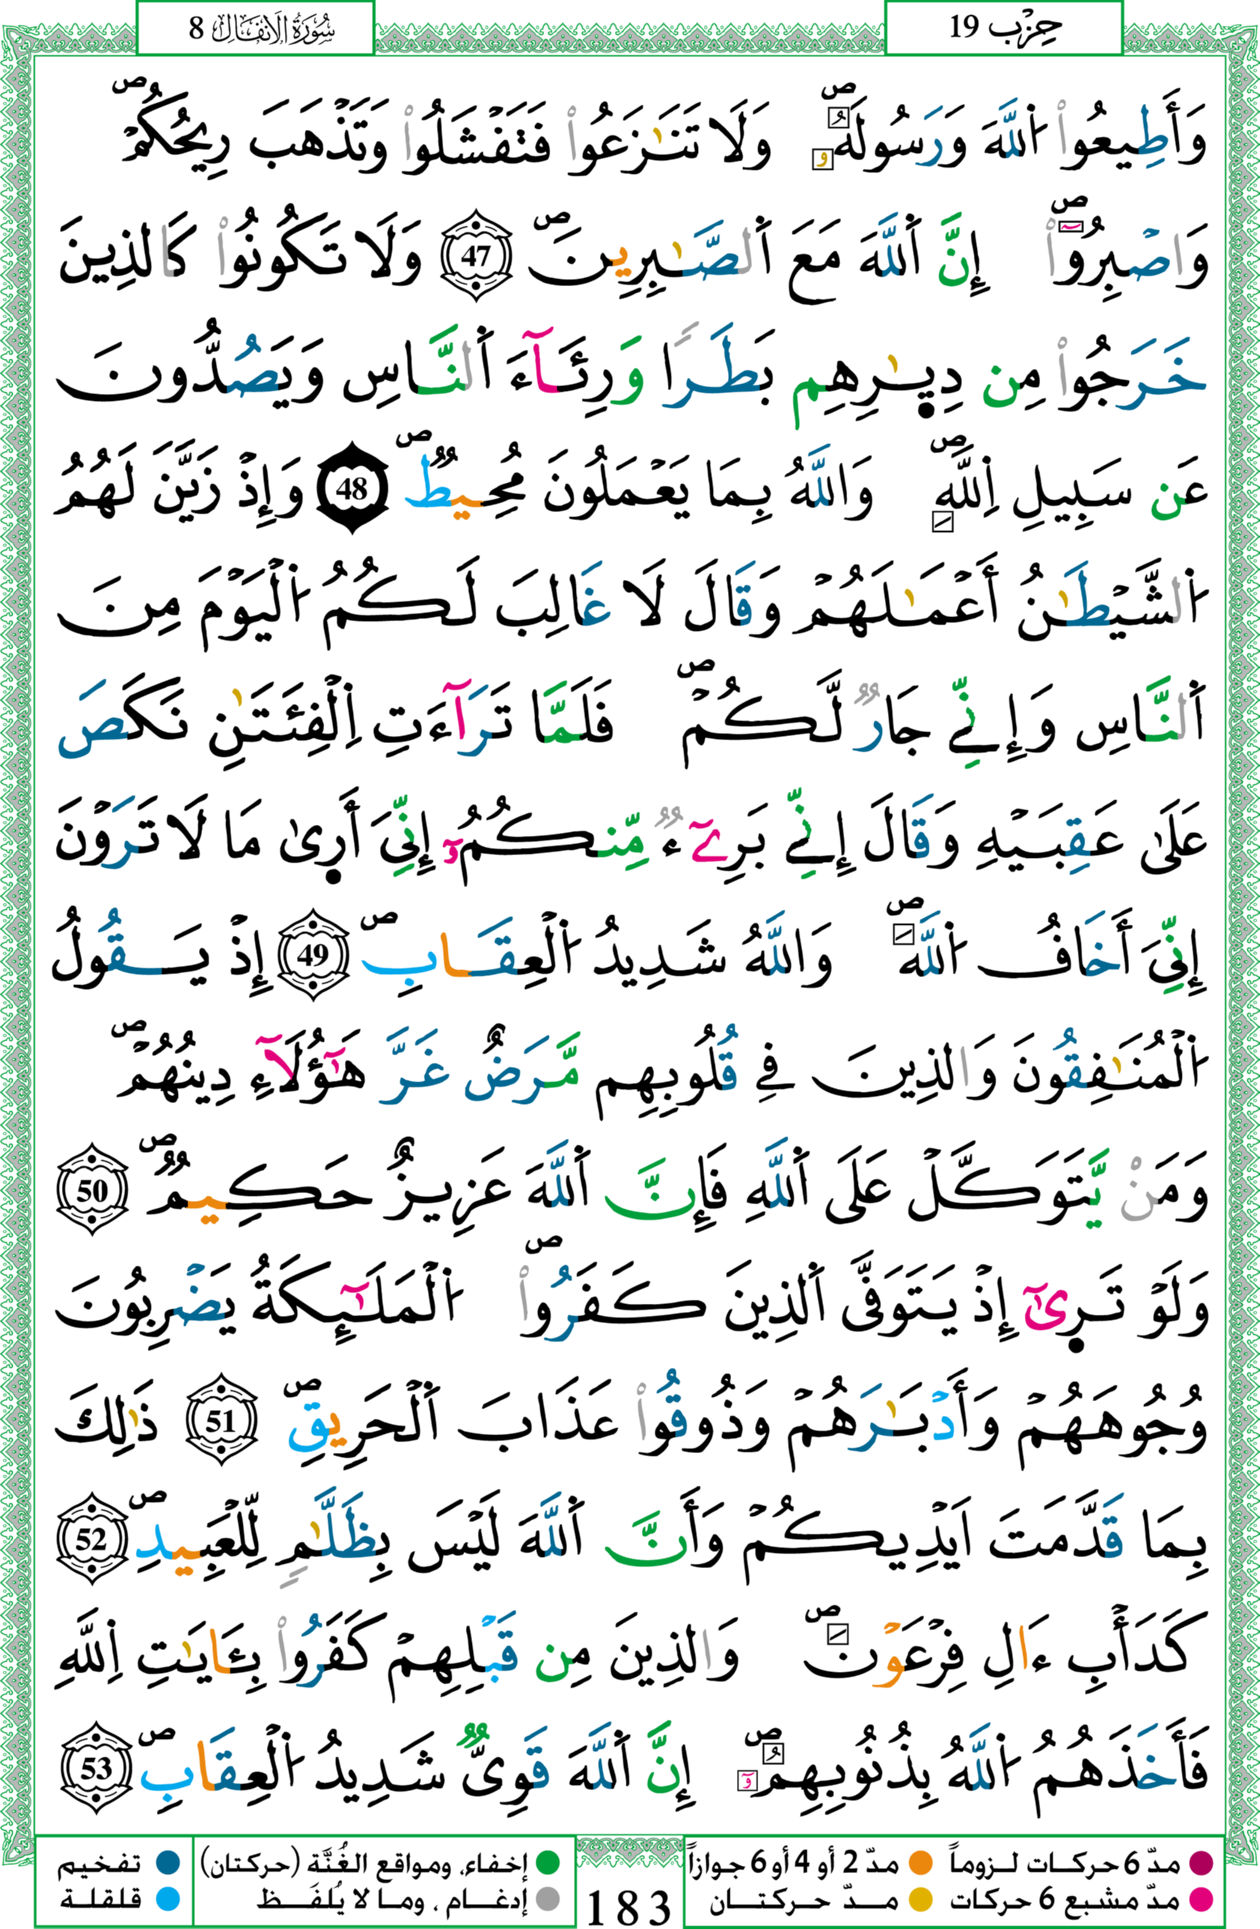 حِزْب 19
سُورَةُ الأَنفَالِ 8
وَأَطِيعُواْ اُ۬للَّهَ وَرَسُولَهُۥۖ وَلَا تَنَٰزَعُواْ فَتَفْشَلُواْ وَتَذْهَبَ رِيحُكُمْۖ
وَاصْبِرُوٓاْۖ إِنَّ اَ۬للَّهَ مَعَ اَ۬لصَّٰبِرِينَۖ 47 وَلَا تَكُونُواْ كَالذِينَ
خَرَجُواْ مِن دِيٰ۪رِهِم بَطَراٗ وَرِئَآءَ اَ۬لنَّاسِ وَيَصُدُّونَ
عَن سَبِيلِ اِ۬للَّهِۖ وَاللَّهُ بِمَا يَعْمَلُونَ مُحِيطٞۖ 48 وَإِذْ زَيَّنَ لَهُمُ
اُ۬لشَّيْطَٰنُ أَعْمَٰلَهُمْ وَقَالَ لَا غَالِبَ لَكُمُ اُ۬لْيَوْمَ مِنَ
اَ۬لنَّاسِ وَإِنِّے جَارٞ لَّكُمْۖ فَلَمَّا تَرَآءَتِ اِ۬لْفِئَتَٰنِ نَكَصَ
عَلَىٰ عَقِبَيْهِ وَقَالَ إِنِّے بَرِےٓءٞ مِّنكُمُۥٓ إِنِّيَ أَر۪ىٰ مَا لَا تَرَوْنَ
إِنِّيَ أَخَافُ اُ۬للَّهَۖ وَاللَّهُ شَدِيدُ اُ۬لْعِقَابِۖ 49 إِذْ يَقُولُ
اُ۬لْمُنَٰفِقُونَ وَالذِينَ فِے قُلُوبِهِم مَّرَضٌ غَرَّ هَٰٓؤُلَآءِ دِينُهُمْۖ
وَمَنْ يَّتَوَكَّلْ عَلَى اَ۬للَّهِ فَإِنَّ اَ۬للَّهَ عَزِيزٌ حَكِيمٞۖ 50
وَلَوْ تَر۪ىٰٓ إِذْ يَتَوَفَّى اَ۬لذِينَ كَفَرُواْۖ اُ۬لْمَلَٰٓئِكَةُ يَضْرِبُونَ
وُجُوهَهُمْ وَأَدْبَٰرَهُمْ وَذُوقُواْ عَذَابَ اَ۬لْحَرِيقِۖ 51 ذَٰلِكَ
بِمَا قَدَّمَتَ اَيْدِيكُمْ وَأَنَّ اَ۬للَّهَ لَيْسَ بِظَلَّٰمٖ لِّلْعَبِيدِۖ 52
كَدَأْبِ ءَالِ فِرْعَوْنَۖ وَالذِينَ مِن قَبْلِهِمْ كَفَرُواْ بِـَٔايَٰتِ اِ۬للَّهِ
فَأَخَذَهُمُ اُ۬للَّهُ بِذُنُوبِهِمُۥٓۖ إِنَّ اَ۬للَّهَ قَوِيّٞ شَدِيدُ اُ۬لْعِقَابِۖ 53
مدّ 6 حركات لـزوماً مدّ 2 أو 4 أو 6 جوازاً
مدّ مشبع 6 حركات مـدّ حـركتـان
183
إخفاء، ومواقع الغُنَّة (حركتان)
إدغـام ، ومـا لا يُلفَـظ
تفخيم
قلقلة